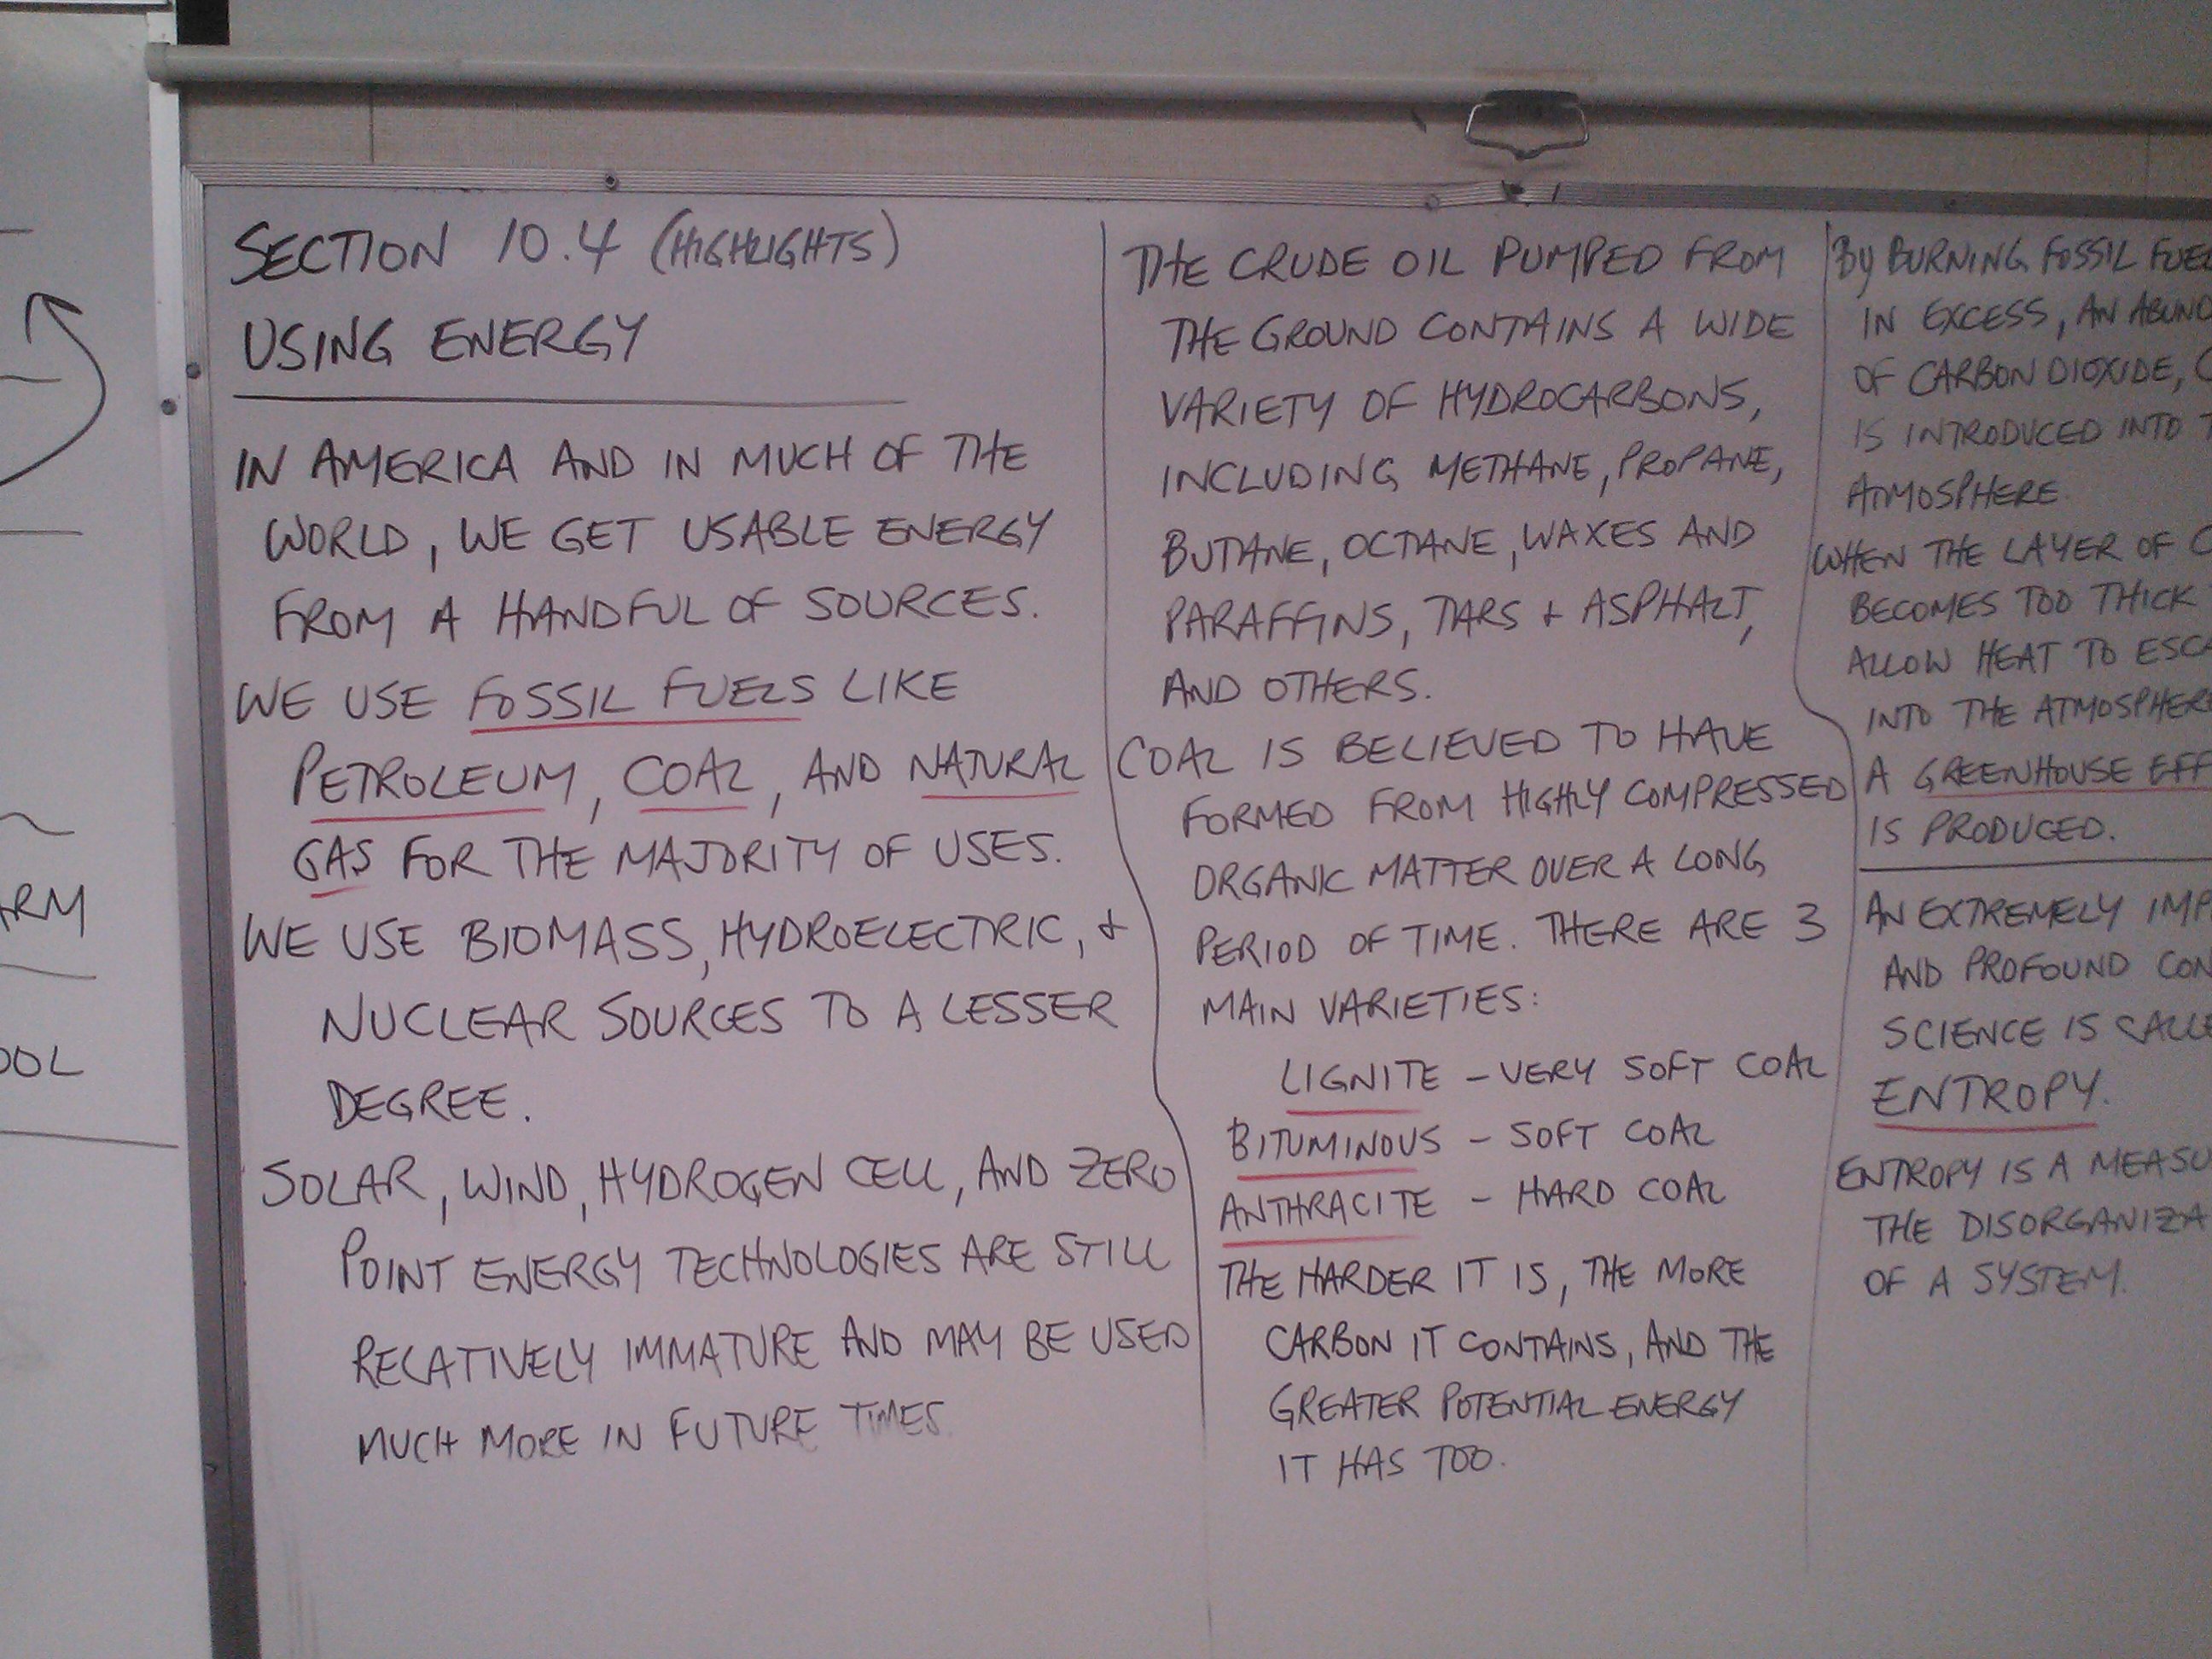 SECTION 10.4 (HIGHLIGHTS)
USING ENERGY
IN AMERICA AND IN MUCH OF THE
WORLD, WE GET USABLE ENERGY
FROM A HANDFUL OF SOURCES.
WE USE FOSSIL FUELS LIKE
PETROLEUM, COAL, AND NATURAL
GAS FOR THE MAJORITY OF USES.
WE USE BIOMASS, HYDROELECTRIC, +
NUCLEAR SOURCES TO A LESSER
DEGREE.
SOLAR, WIND, HYDROGEN CELL, AND ZERO
POINT ENERGY TECHNOLOGIES ARE STILL
RELATIVELY IMMATURE AND MAY BE USED
MUCH MORE IN FUTURE TIMES
THE CRUDE OIL PUMPED FROM
THE GROUND CONTAINS A WIDE
VARIETY OF HYDROCARBONS,
INCLUDING METHANE, PROPANE,
BUTANE, OCTANE, WAXES AND
PARAFFINS, TARS + ASPHALT,
AND OTHERS.
COAL IS BELIEVED TO HAVE
FORMED FROM HIGHLY COMPRESSED
ORGANIC MATTER OVER A LONG
PERIOD OF TIME. THERE ARE 3
MAIN VARIETIES:
LIGNITE - VERY SOFT COAL
BITUMINOUS - SOFT COAL
ANTHRACITE - HARD COAL
THE HARDER IT IS, THE MORE
CARBON IT CONTAINS, AND THE
GREATER POTENTIAL ENERGY
IT HAS TOO.
BY BURNING FOSSIL FUEL
IN EXCESS, AN ABUND
OF CARBON DIOXIDE, C
IS INTRODUCED INTO T
ATMOSPHERE.
WHEN THE LAYER OF C
BECOMES TOO THICK
ALLOW HEAT TO ESCA
INTO THE ATMOSPHERE
A GREENHOUSE EFF
IS PRODUCED.
AN EXTREMELY IMP
AND PROFOUND CON
SCIENCE IS CALLE
ENTROPY.
ENTROPY IS A MEASU
THE DISORGANIZA
OF A SYSTEM.
ARM
OOL